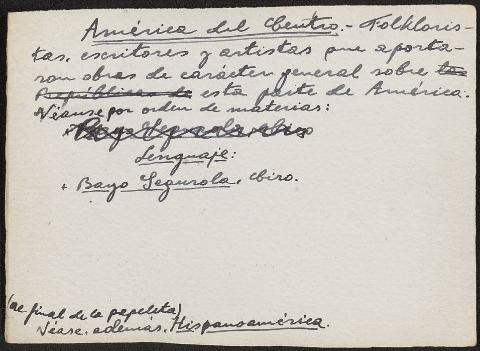 América del Centro.- Folkloris-
tas, escritores y artistas que aporta-
ron obras de carácter general sobre las
Repúblicas de esta parte de América.
Véanse por orden de materias:
Bayo Segurola, Ciro
Lenguaje:
+ Bayo Segurola, Ciro.
(al final de la papeleta)
Véase, además, Hispanoamérica.